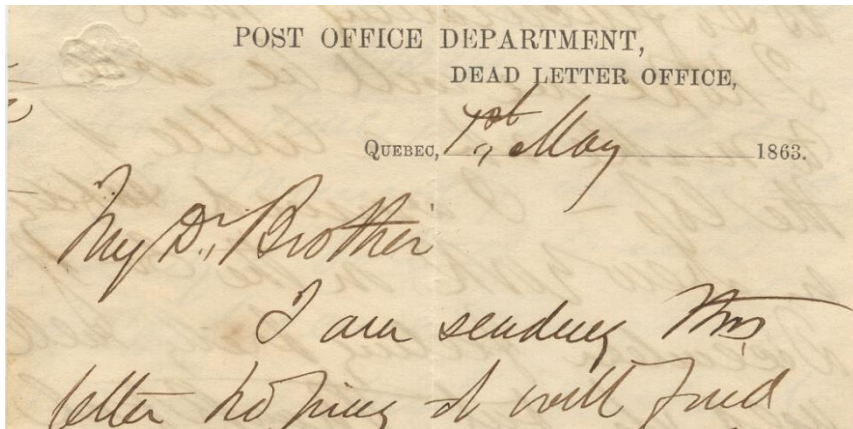 POST OFFICE DEPARTMENT,
DEAD LETTER OFFICE,
QUEBEC, 1st May 1863.
My Dr. Brother
I am sending this
letter hoping it will find